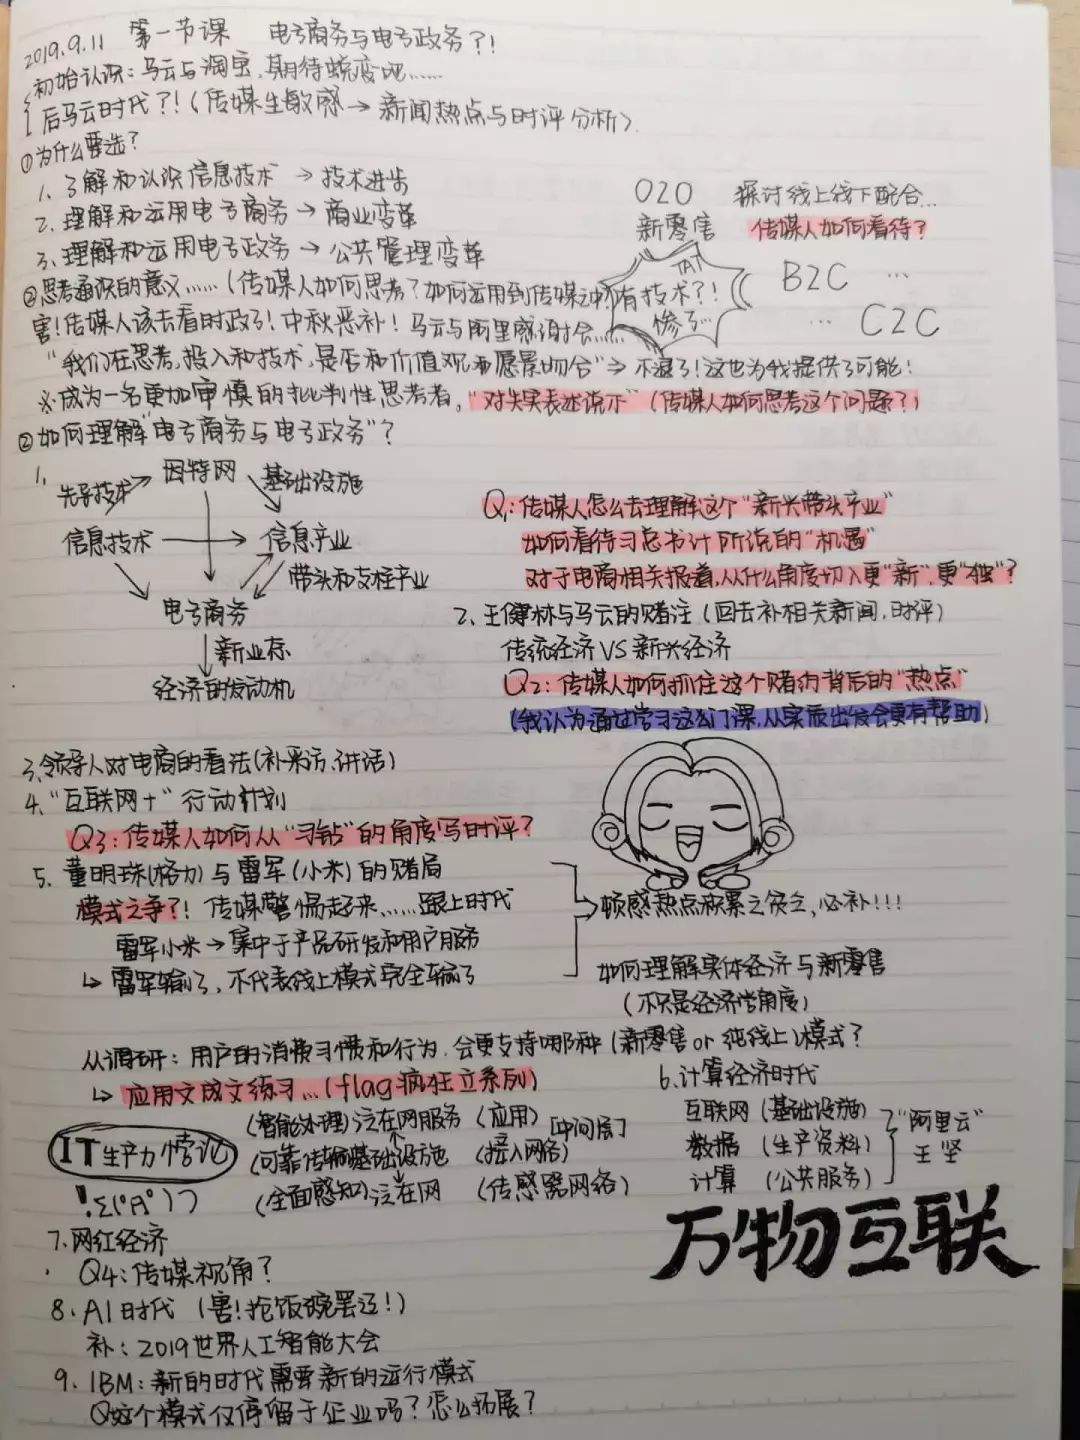 2019.9.11 第一节课 电子商务与电子政务?!
初始认识:马云与淘宝,期待蜕变吧……
后马云时代?!(传媒生敏感→新闻热点与时评分析)
①为什么要选?
1. 了解和认识信息技术→技术进步
2. 理解和运用电子商务→商业变革
3. 理解和运用电子政务→公共管理变革
O2O 探讨线上线下配合…
新零售 传媒人如何看待?
B2C …
… C2C
TAT
惨了…
②思考通识的意义……(传媒人如何思考?如何运用到传媒之中?有技术?!
害!传媒人该去看时政了!中秋恶补!马云与阿里感谢会……
"我们在思考,投入和技术,是否和价值观和愿景吻合"→不退了!这也为我提供了可能!
※成为一名更加审慎的批判性思考者,"对失实表述说不"(传媒人如何思考这个问题?)
②如何理解"电子商务与电子政务"?
1.
先导技术 因特网 基础设施
信息技术 → 信息产业
带头和支柱产业
电子商务
新业态
经济的发动机
Q1:传媒人怎么去理解这个"新兴带头产业"
如何看待习总书记所说的"机遇"
对于电商相关报道,从什么角度切入更"新",更"独"?
2. 王健林与马云的赌注(回去补相关新闻,时评)
传统经济VS新兴经济
Q2:传媒人如何抓住这个赌约背后的"热点"
(我认为通过学习这门课,从实际出发会更有帮助)
3. 领导人对电商的看法(补采访、讲话)
4. "互联网+"行动计划
Q3:传媒人如何从"刁钻"的角度写时评?
5. 董明珠(格力)与雷军(小米)的赌局
模式之争?!传媒警惕起来……跟上时代
雷军小米→集中于产品研发和用户服务
↳雷军输了,不代表线上模式完全输了
顿感热点积累之贫乏,必补!!!
如何理解实体经济与新零售
(不只是经济学角度)
从调研:用户的消费习惯和行为,会更支持哪种(新零售or纯线上)模式?
↳应用文成文练习…(flag疯狂立系列)
IT生产力悖论
(智能处理)泛在网服务(应用)[中间层]
(可靠传输)基础设施(接入网络)
(全面感知)泛在网(传感器网络)
6. 计算经济时代
互联网(基础设施)
数据(生产资料)
计算(公共服务)
"阿里云"
王坚
万物互联
7. 网红经济
Q4:传媒视角?
8. AI时代(害!抢饭碗罢辽!)
补:2019世界人工智能大会
9. IBM:新的时代需要新的运行模式
Q这个模式仅停留于企业吗?怎么拓展?